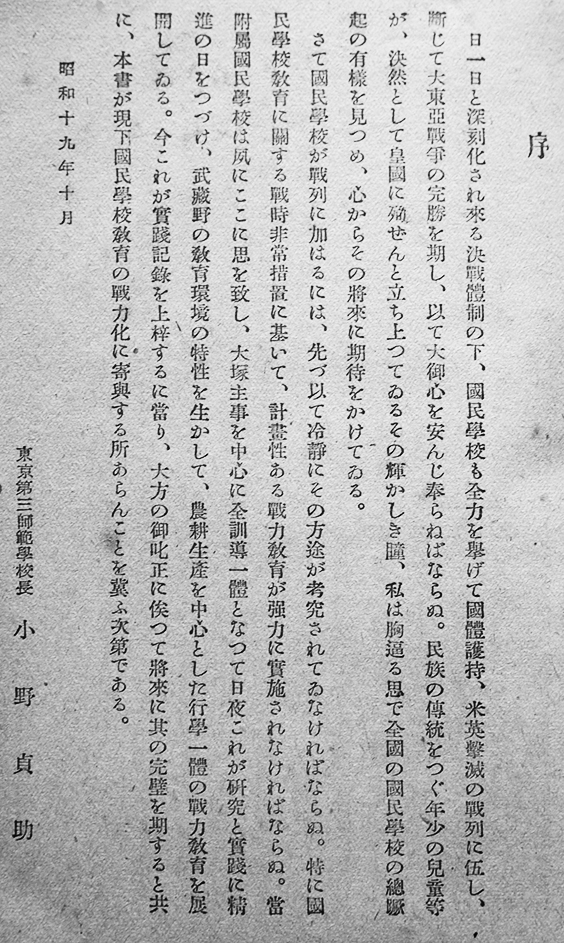 序
日一日と深刻化され來る決戰體制の下、國民學校も全力を擧げて國體護持、米英擊滅の戰列に伍し、
斷じて大東亞戰爭の完勝を期し、以て大御心を安んじ奉らねばならぬ。民族の傳統をつぐ年少の兒童等
が、決然として皇國に殉ぜんと立ち上つてゐるその輝かしき瞳、私は胸逼る思で全國の國民學校の總蹶
起の有樣を見つめ、心からその將來に期待をかけてゐる。
さて國民學校が戰列に加はるには、先づ以て冷靜にその方途が考究されてゐなければならぬ。特に國
民學校敎育に關する戰時非常措置に基いて、計畫性ある戰力敎育が强力に實施されなければならぬ。當
附屬國民學校は夙にここに思を致し、大塚主事を中心に全訓導一體となつて日夜これが硏究と實踐に精
進の日をつづけ、武藏野の敎育環境の特性を生かして、農耕生產を中心とした行學一體の戰力敎育を展
開してゐる。今これが實踐記錄を上梓するに當り、大方の御叱正に俟つて將來に其の完璧を期すると共
に、本書が現下國民學校敎育の戰力化に寄與する所あらんことを冀ふ次第である。
昭和十九年十月
東京第三師範學校長 小野貞助